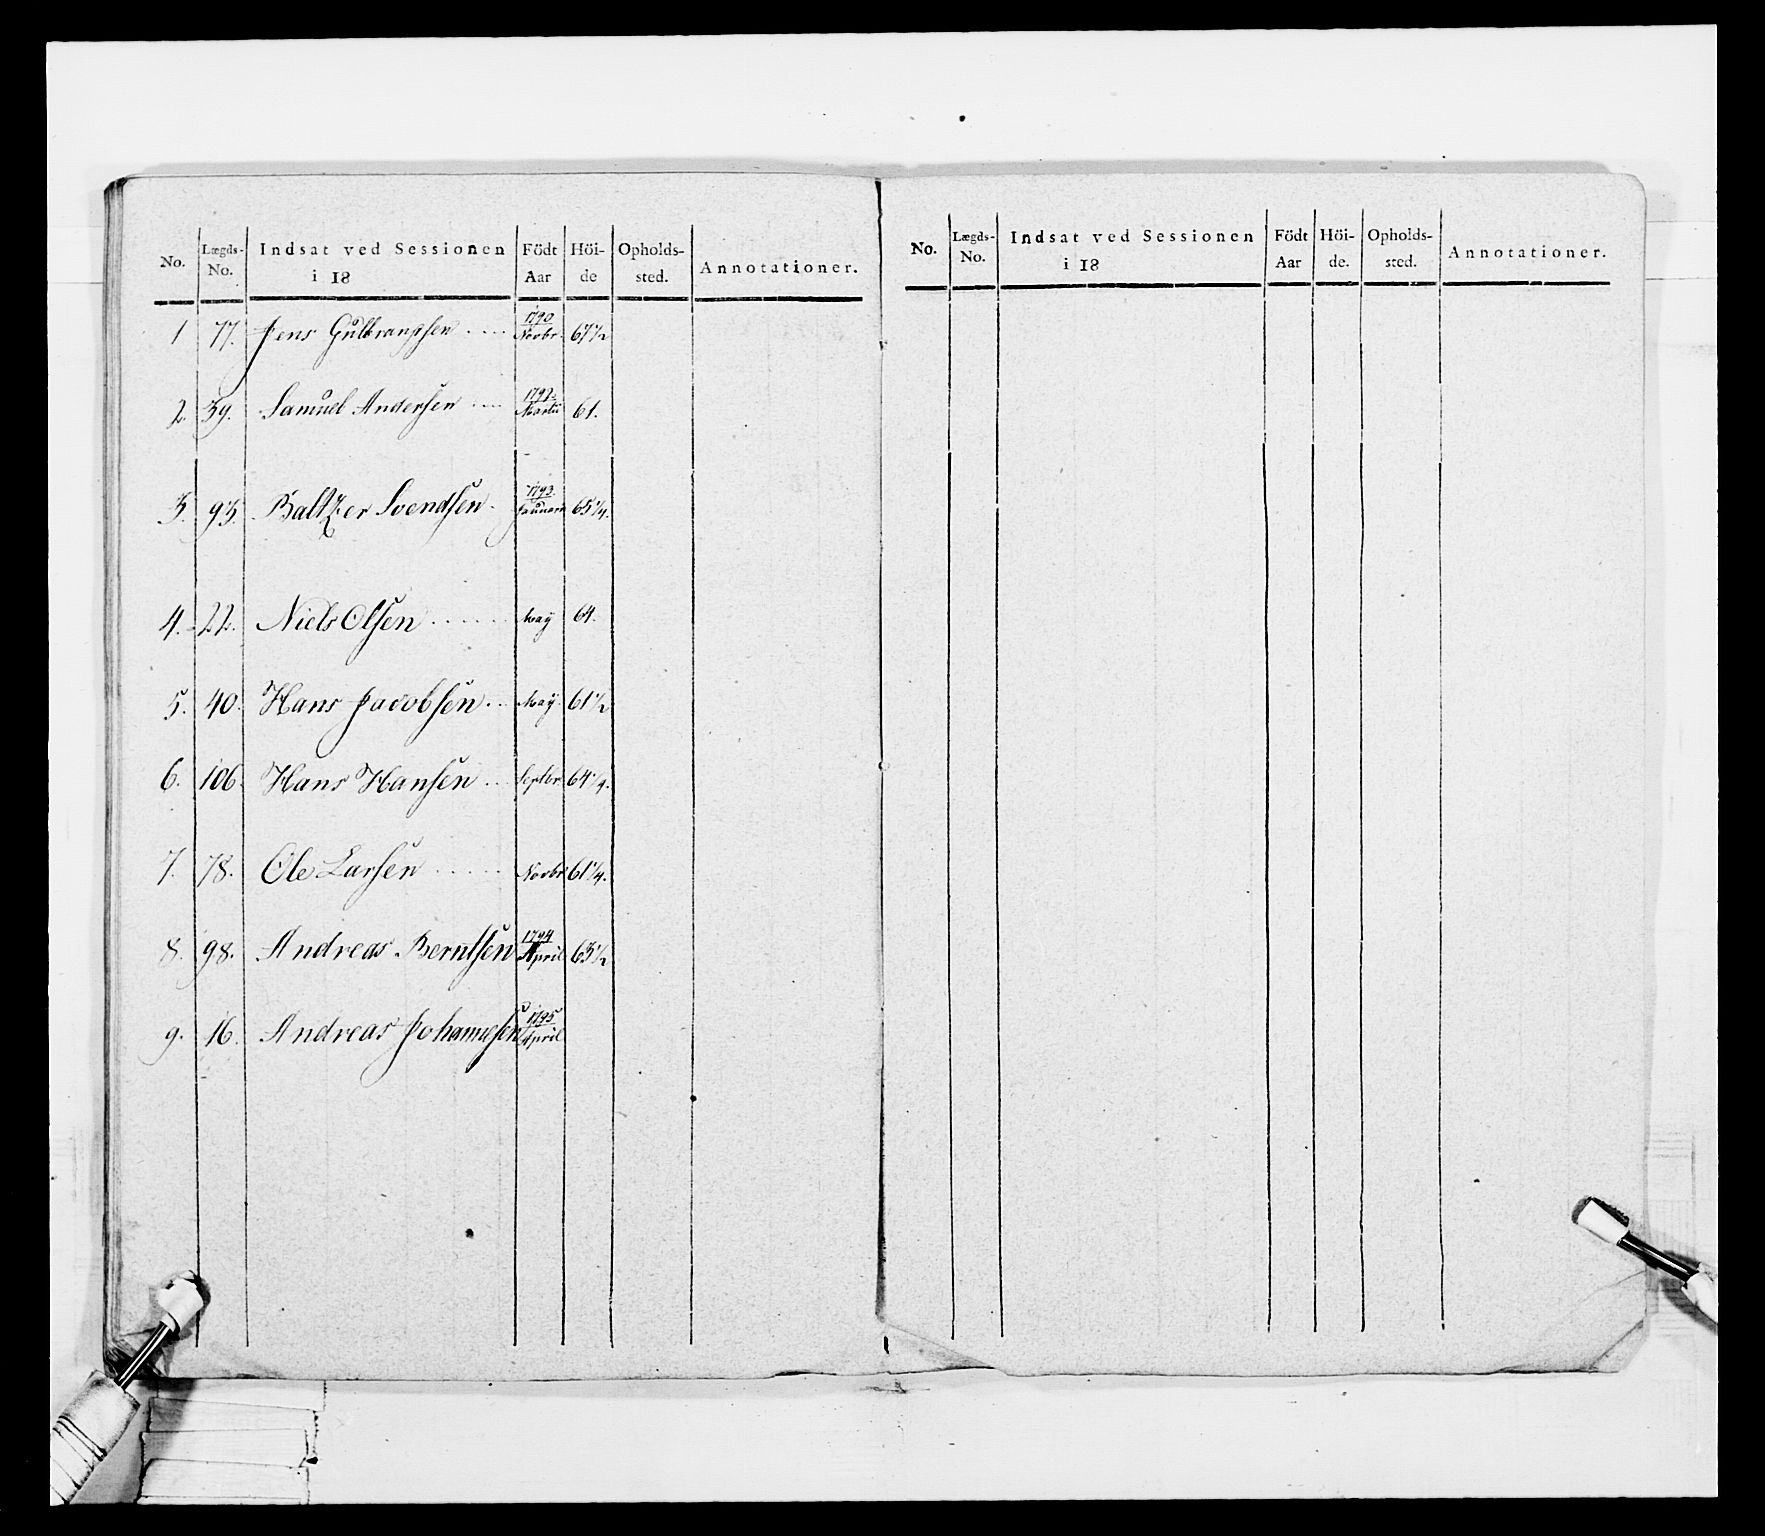 No. Lægds-No. Indsat ved Sessionen i 18 Födt Aar Höi-de Opholds-sted. Annotationer.
1 77. Jens Gulbransen .... 1790 Novbr. 67 1/2
2. 39. Samuel Andersen .... 1792. Martii 61.
3. 93. Baltzer Svendsen. 1793. Januarii 65 1/4.
4. 22. Niels Olsen ...... May 64.
5. 40. Hans Jacobsen ... May 61 1/2
6. 106. Hans Hansen .. Septbr 64 1/4.
7. 78. Ole Larsen ..... Novbr 61 1/4.
8. 98. Andreas Berntsen 1794 April 63 1/2
9. 16. Andreas Johannesen 1795 April
No. Lægds-No. Indsat ved Sessionen i 18 Födt Aar Höi-de. Opholds-sted. Annotationer.